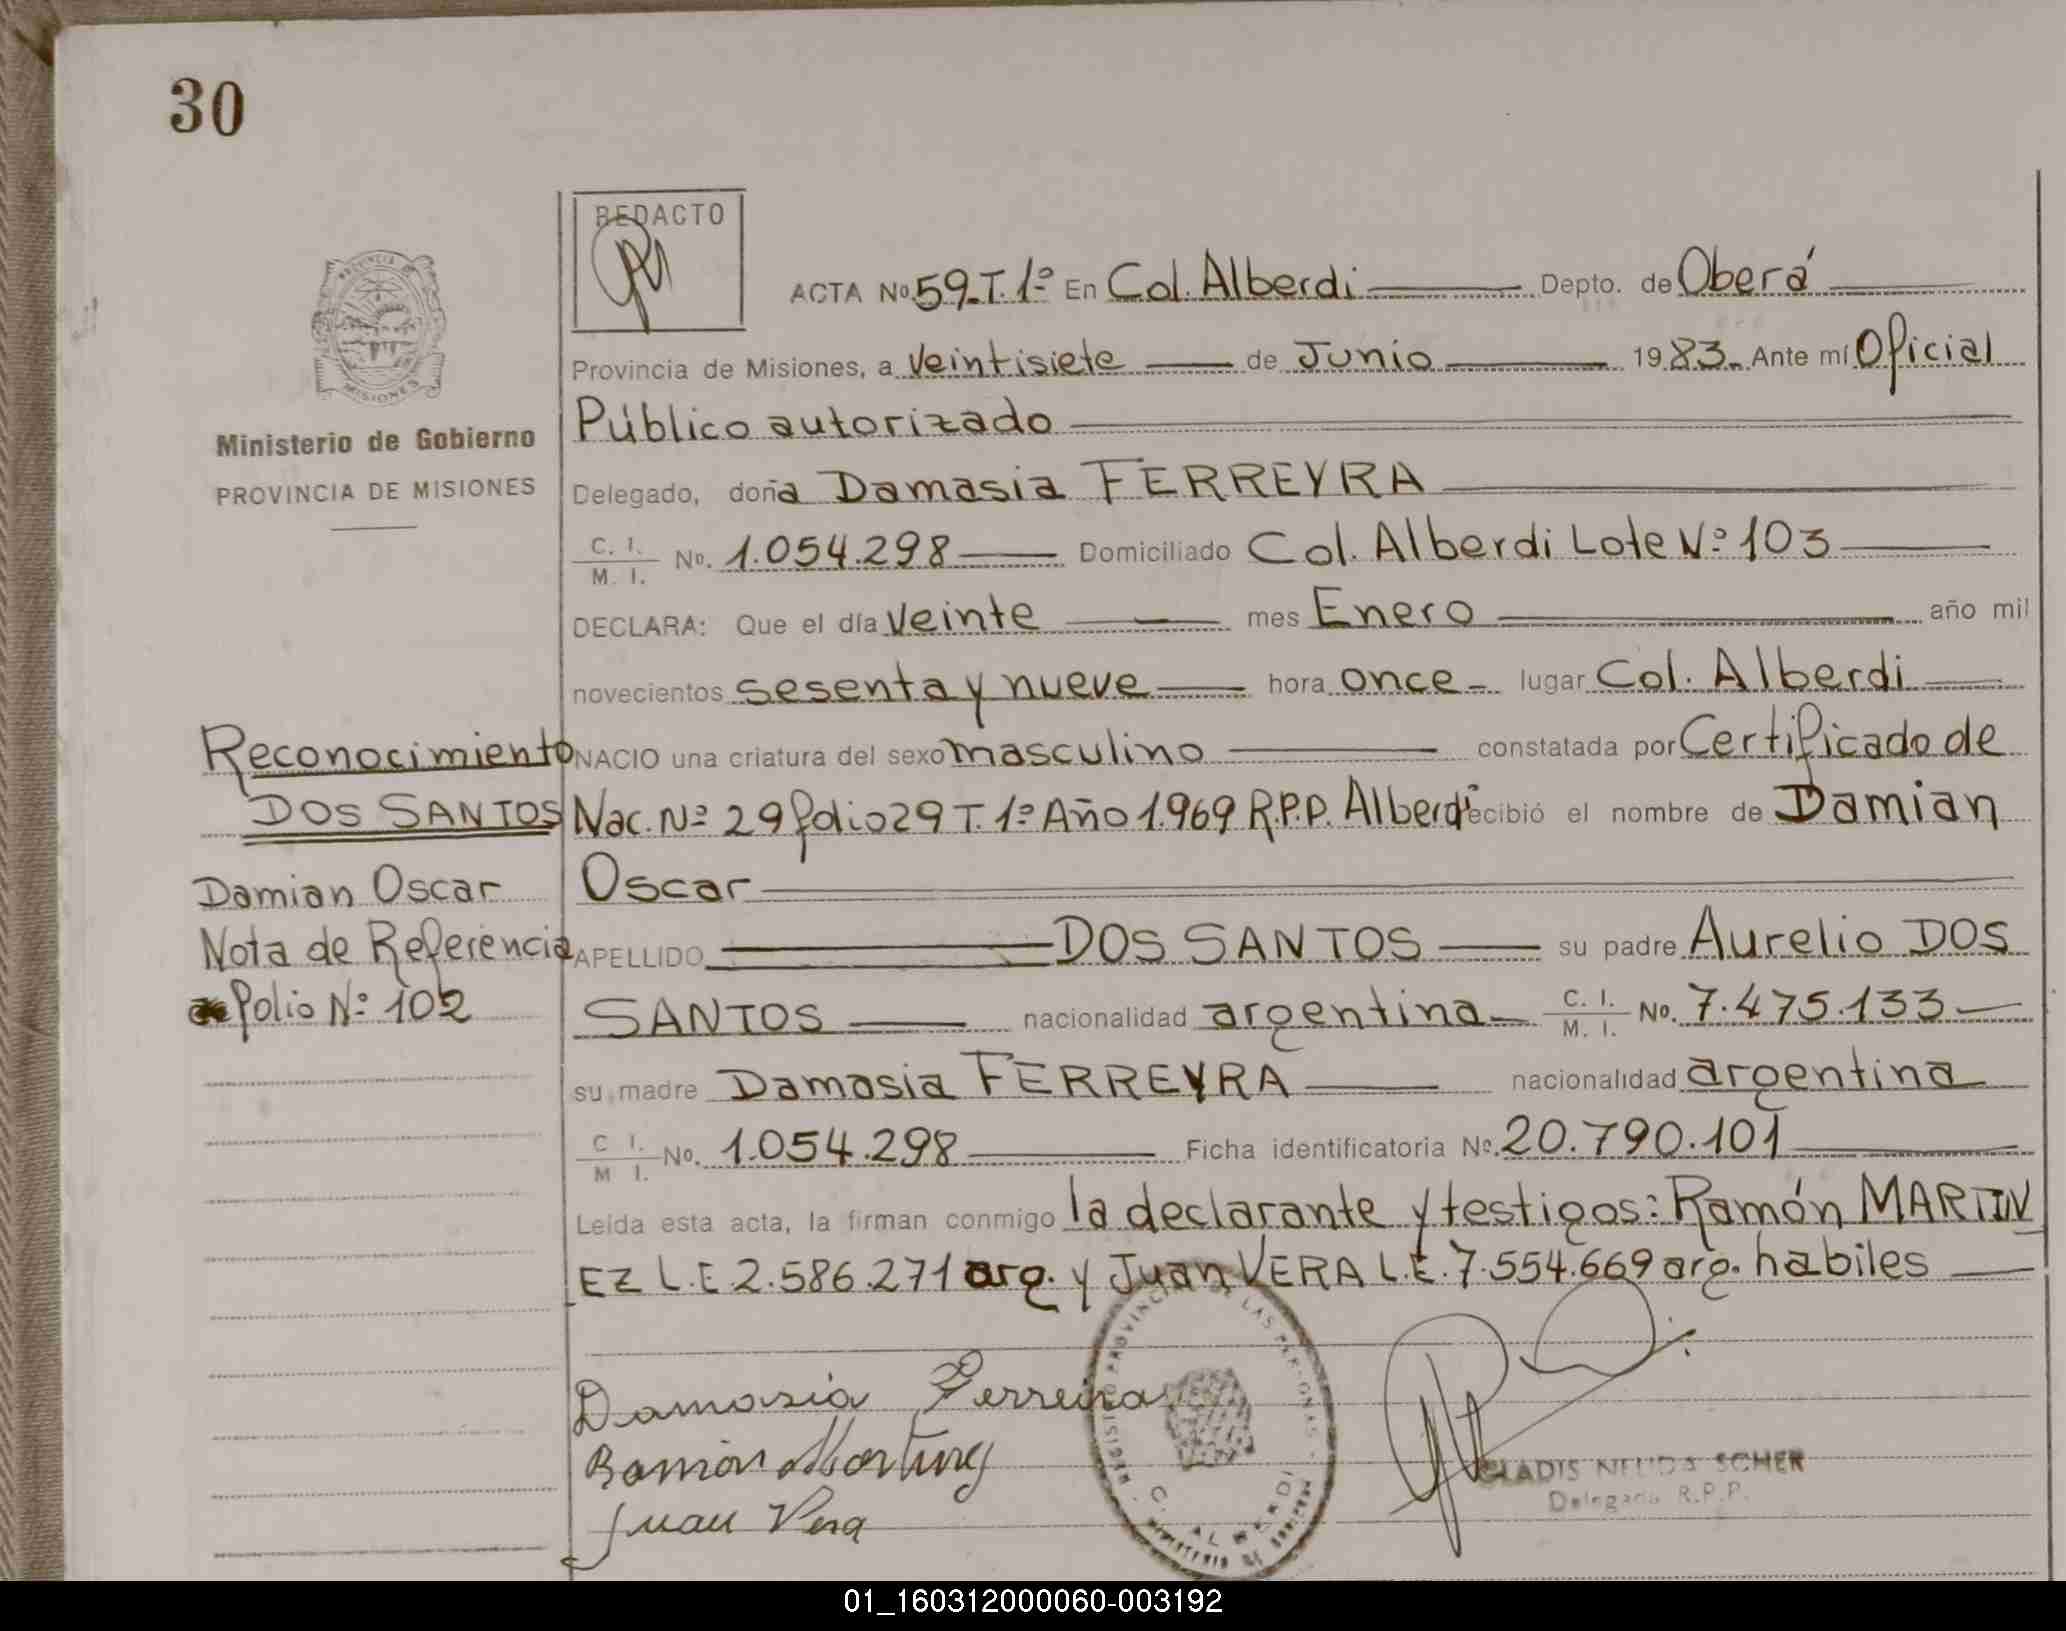 30
REDACTO
ACTA No 59-T. 1º En Col. Alberdi Depto. de Oberá
Provincia de Misiones, a veintisiete de Junio 1983. Ante mí Oficial
Público autorizado
Ministerio de Gobierno
PROVINCIA DE MISIONES
Delegado, doña Damasia FERREYRA
C. I. / M. I. No. 1.054.298 Domiciliado Col. Alberdi Lote Nº 103
DECLARA: Que el día veinte mes Enero año mil
novecientos sesenta y nueve hora once lugar Col. Alberdi
Reconocimiento
DOS SANTOS
Damian Oscar
Nota de Referencia
folio Nº 102
NACIO una criatura del sexo masculino constatada por Certificado de
Nac. Nº 29 folio 29 T. 1º Año 1.969 R.P.P. Alberdi recibió el nombre de Damian
Oscar
APELLIDO DOS SANTOS su padre Aurelio DOS
SANTOS nacionalidad argentina C. I. / M. I. No. 7.475.133
su madre Damasia FERREYRA nacionalidad argentina
C I. / M I. No. 1.054.298 Ficha identificatoria No. 20.790.101
Leída esta acta, la firman conmigo la declarante y testigos: Ramón MARTIN
EZ L.E 2.586.271 arg. y Juan VERA L.E. 7.554.669 arg. habiles
Damasia Ferreira
Ramón Martinez
Juan Vera
GLADIS NELIDA SCHER
Delegada R.P.P.
01_160312000060-003192